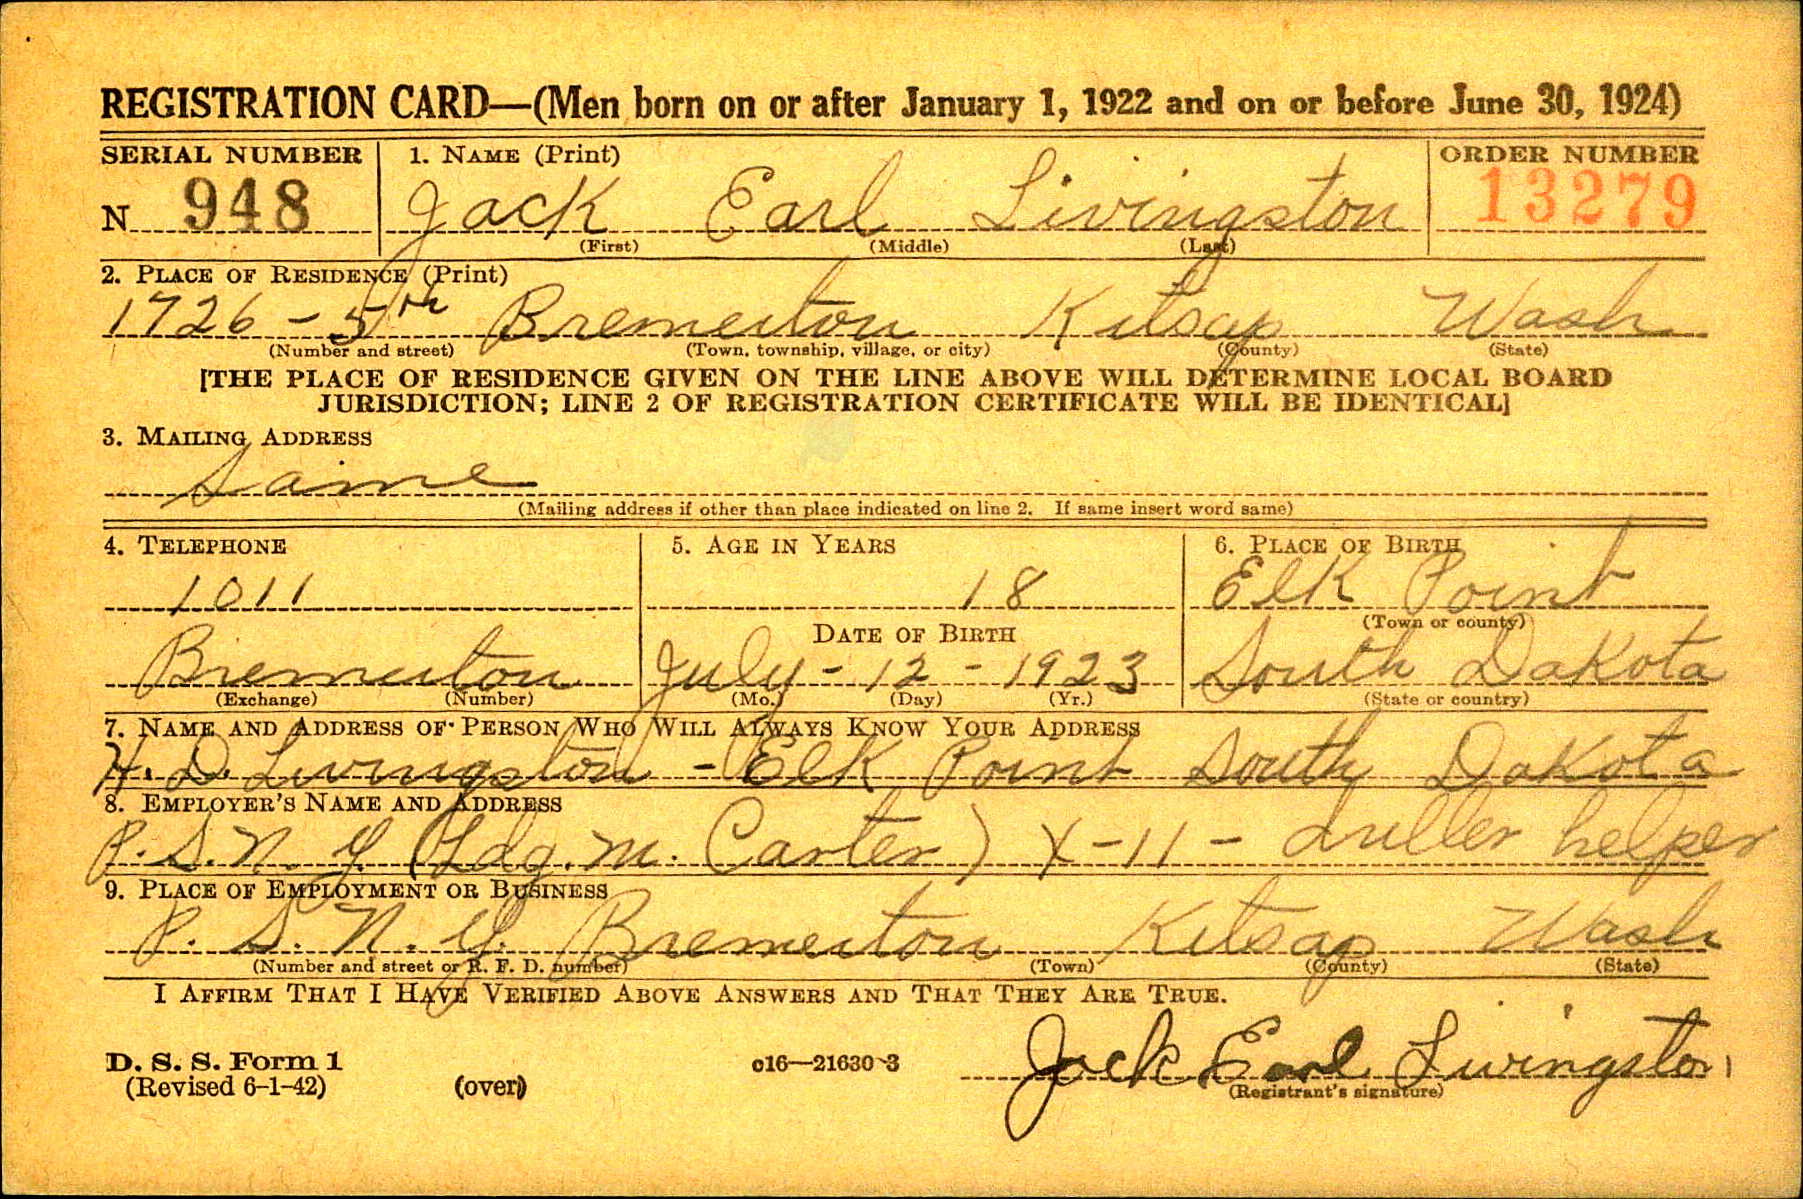 REGISTRATION CARD—(Men born on or after January 1, 1922 and on or before June 30, 1924)
SERIAL NUMBER 1. NAME (Print) ORDER NUMBER
N 948 Jack Earl Livingston 13279
(First) (Middle) (Last)
2. PLACE OF RESIDENCE (Print)
1726 - 5th Bremerton Kitsap Wash
(Number and street) (Town, township, village, or city) (County) (State)
[THE PLACE OF RESIDENCE GIVEN ON THE LINE ABOVE WILL DETERMINE LOCAL BOARD
JURISDICTION; LINE 2 OF REGISTRATION CERTIFICATE WILL BE IDENTICAL]
3. MAILING ADDRESS
Same
(Mailing address if other than place indicated on line 2. If same insert word same)
4. TELEPHONE 5. AGE IN YEARS 6. PLACE OF BIRTH
1011 18 Elk Point
DATE OF BIRTH (Town or county)
Bremerton July - 12 - 1923 South Dakota
(Exchange) (Number) (Mo.) (Day) (Yr.) (State or country)
7. NAME AND ADDRESS OF PERSON WHO WILL ALWAYS KNOW YOUR ADDRESS
H. D. Livingston - Elk Point South Dakota
8. EMPLOYER'S NAME AND ADDRESS
P. S. N. Y. (Ldg. M. Carter) X-11 - driller helper
9. PLACE OF EMPLOYMENT OR BUSINESS
P. S. N. Y. Bremerton Kitsap Wash
(Number and street or R. F. D. number) (Town) (County) (State)
I AFFIRM THAT I HAVE VERIFIED ABOVE ANSWERS AND THAT THEY ARE TRUE.
Jack Earl Livingston
D. S. S. Form 1 c16—21630-3 (Registrant's signature)
(Revised 6-1-42) (over)